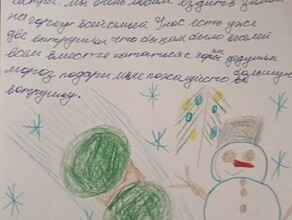 катри. мы очень любим ездить зимой
на горку всей семьёй. У нас есть уже
две ватрушки что бы нам было веселей
всем вместе кататься с горы дедушка
мороз подари мне пожалуйста большую
ватрушку.